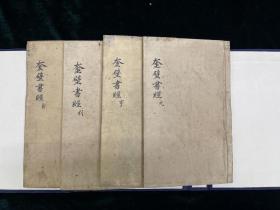 奎壁書經 元
奎壁書經 亨
奎壁書經 利
奎壁書經